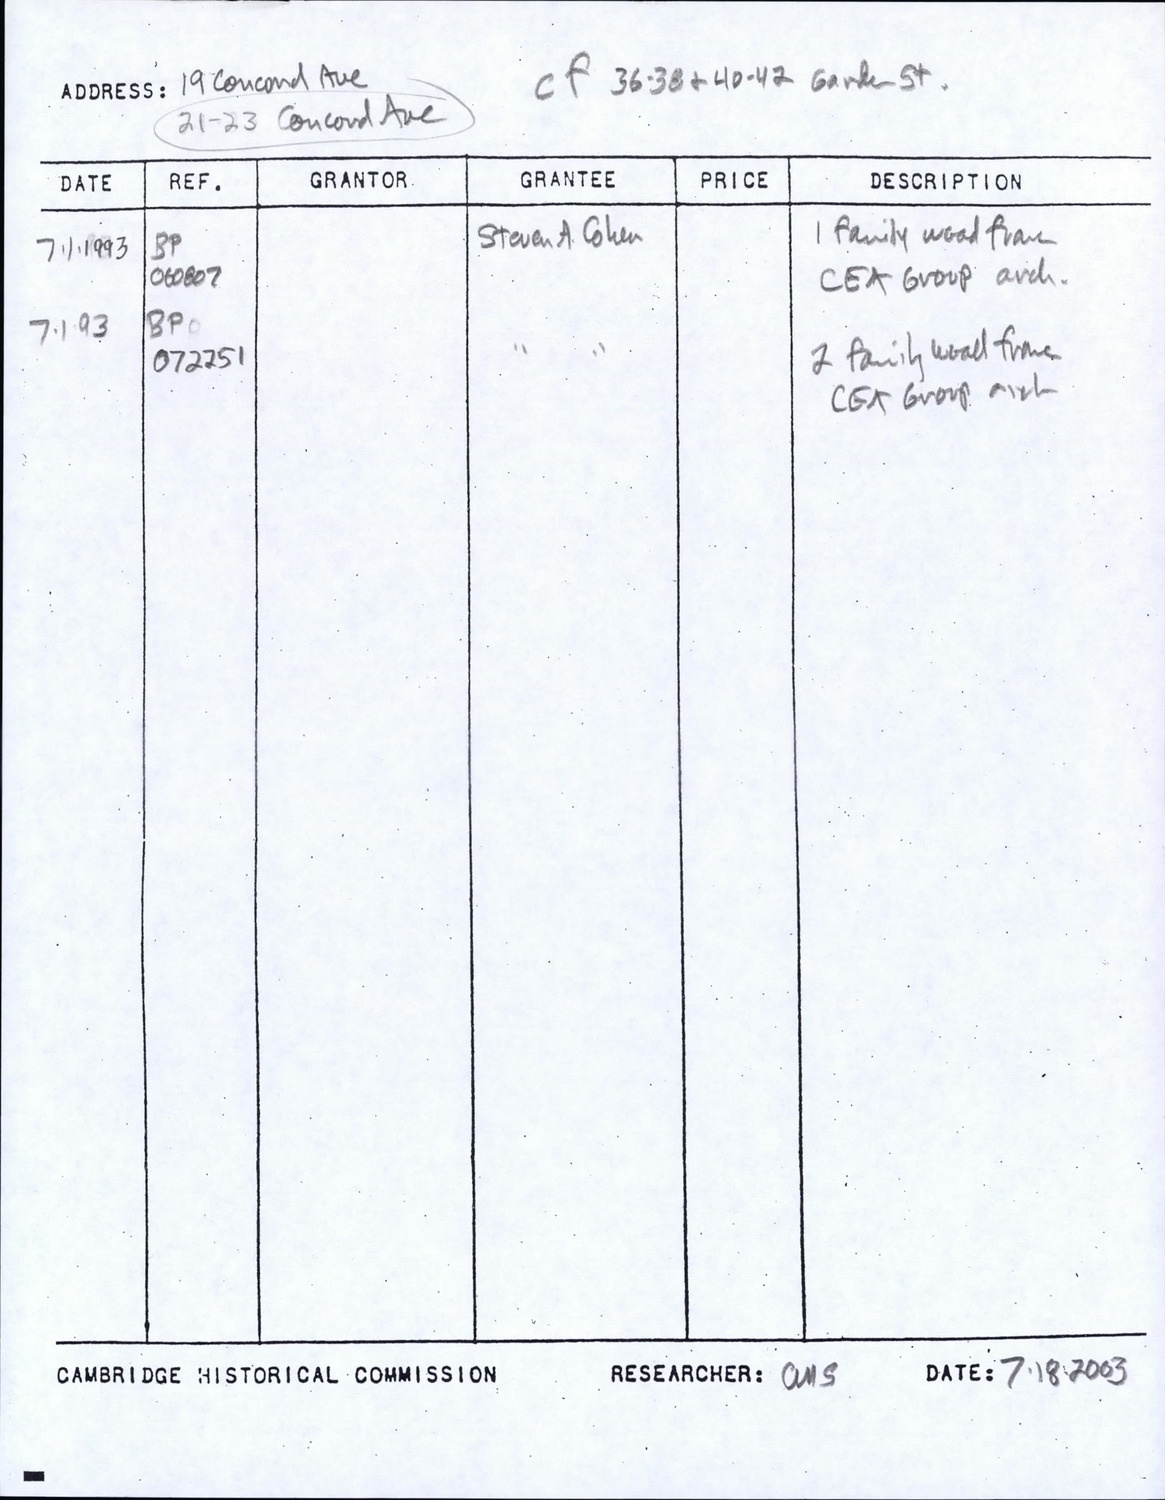 ADDRESS: 19 Concord Ave
cf 36-38 + 40-42 Garden St.
21-23 Concord Ave
DATE REF. GRANTOR GRANTEE PRICE DESCRIPTION
7.1.1993 BP Steven A. Cohen 1 family wood frame
060807 CEA Group arch.
7.1.93 BP
072251 " " 2 family wood frame
CEA Group arch
CAMBRIDGE HISTORICAL COMMISSION RESEARCHER: DATE: 7.18.2003